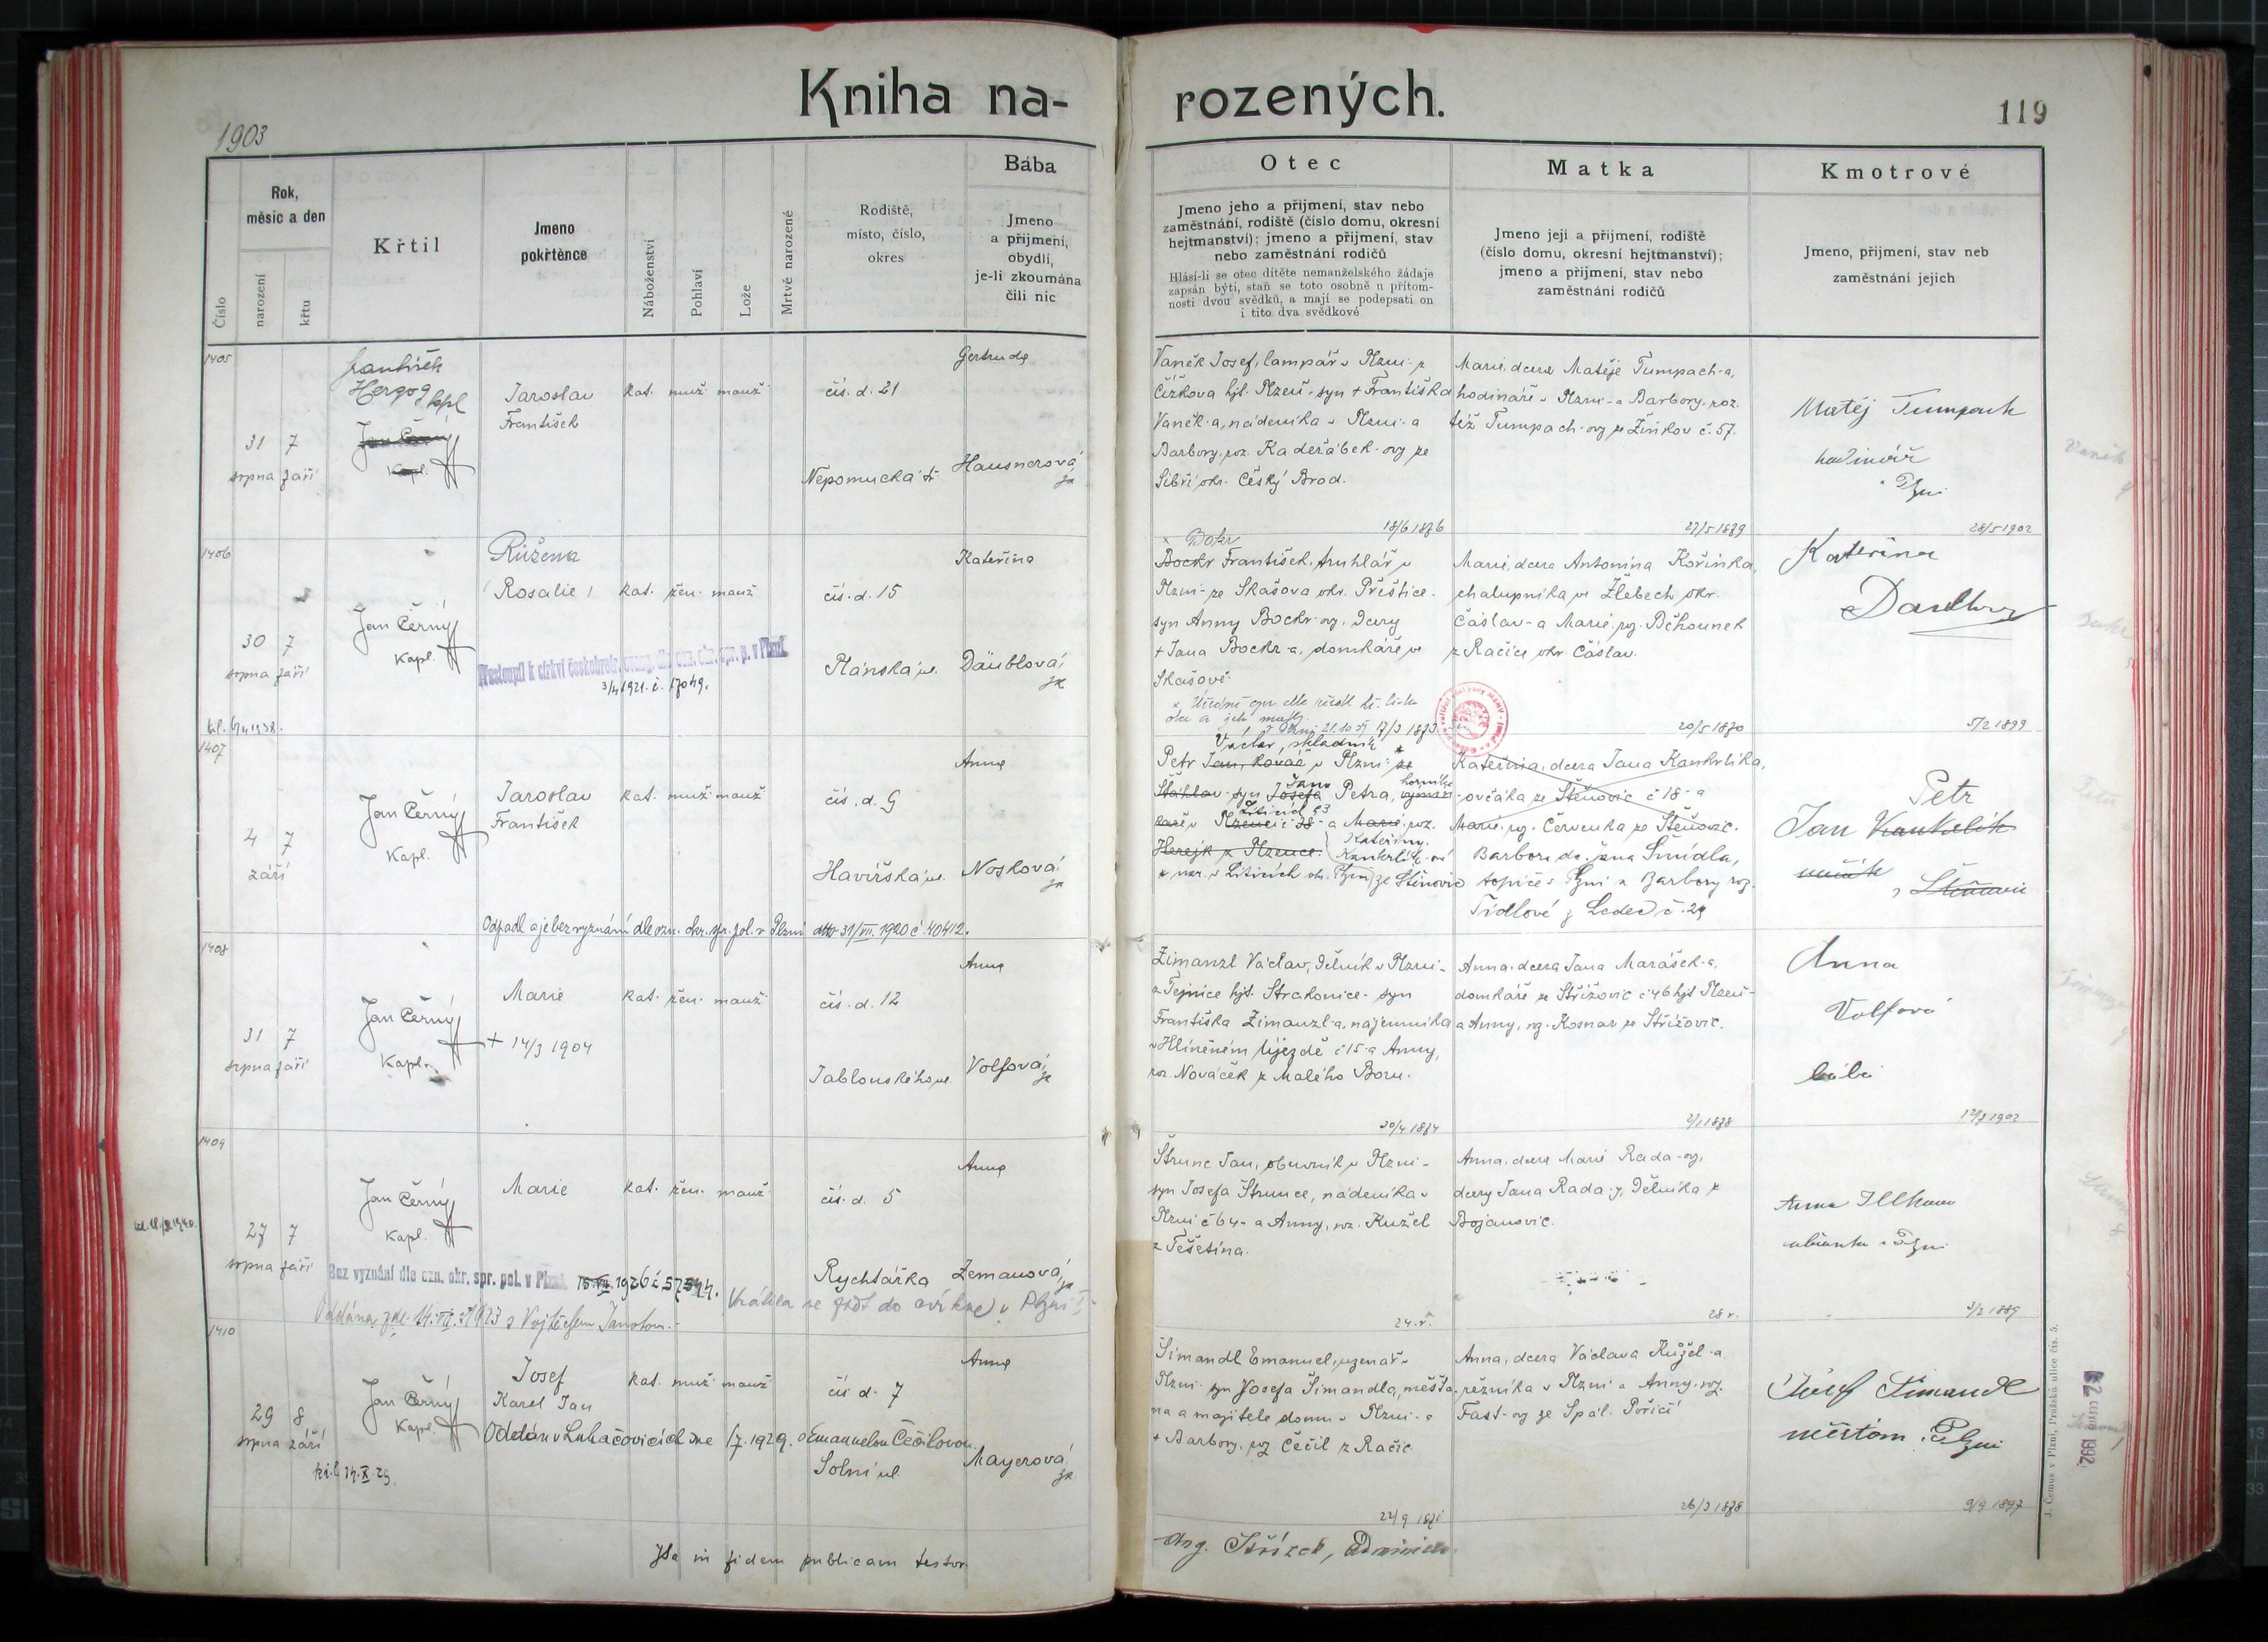 Kniha na-
rozených.
119
1903
Číslo
Rok,
měsíc a den
narození
křtu
Křtil
Jmeno
pokřtěnce
Náboženství
Pohlaví
Lože
Mrtvě narozené
Rodiště,
místo, číslo,
okres
Bába
Jmeno
a přijmení,
obydlí,
je-li zkoumána
čili nic
Otec
Jmeno jeho a přijmení, stav nebo
zaměstnání, rodiště (číslo domu, okresní
hejtmanství); jmeno a přijmení, stav
nebo zaměstnání rodičů
Hlásí-li se otec dítěte nemanželského žádaje
zapsán býti, staň se toto osobně u přítom-
nosti dvou svědků, a mají se podepsati on
i tito dva svědkové
Matka
Jmeno její a přijmení, rodiště
(číslo domu, okresní hejtmanství);
jmeno a přijmení, stav nebo
zaměstnání rodičů
Kmotrové
Jmeno, přijmení, stav neb
zaměstnání jejich
1405
31 7
srpna září
František
Hergog kpl
Jan Černý
Kapl.
Jaroslav
František
kat. muž. manž.
čís. d. 21
Nepomucká tř.
Gertruda
Hausnerová
zk
Vaněk Josef, lampář v Plzni z
Čížkova hjt. Plzeň, syn + Františka
Vaněk-a, nádeníka v Plzni a
Barbory, roz. Kadeřábek-ovy ze
Sibří okr. Český Brod.
18/6 1876
Marie, dcera Matěje Tumpach-a,
hodináře v Plzni a Barbory, roz.
též Tumpach-ovy ze Žinkov č. 57.
27/5 1879
Matěj Tumpach
hodinář
v Plzni
28/5 1902
1406
30 7
srpna září
Jan Černý
Kapl.
Růžena
(Rosalie)
kat. žen. manž.
Přestoupil k církvi českobratr. evang. dle ozn. okr. spr. p. v Plzni
3/4 1921. č. 17049.
čís. d. 15
Plánská ul.
Kateřina
Däublová
zk
× Bokr
Bockr František, truhlář v
Plzni ze Skašova okr. Přeštice.
syn Anny Bockr-ovy, dcery
+ Jana Bockr-a, domkáře ve
Skašově.
17/3 1873
Marie, dcera Antonína Kořínka,
chalupníka ve Žlebech okr.
Čáslav a Marie, roz. Běhounek
z Račice okr. Čáslav.
20/5 1870
Kateřina
5/2 1899
1407
4 7
září
Jan Černý
Kapl.
Jaroslav
František
kat. muž. manž.
čís. d. 9
Havířská ul.
Anna
Nosková
zk
Odpadl a je bez vyznání dle ozn. okr. spr. pol. v Plzni dto 31/VII. 1920 č. 40412.
Václav, skladník
Petr Jan, kovář v Plzni ze
Šťáhlav syn Josefa Petra,
Jana
Herejk z Plzence. Kateřiny
× nar. v Liticích ok. Plzeň ze Stěnovic
Kateřina, dcera Jana Kankrlíka,
ovčáka ze Stěnovic č 18 a
Marie, roz. Červenka ze Stěnovic.
Barbora dc. Jana Šmídla,
topiče v Plzni a Barbory roz.
Tídlové z Ledec č. 29
Petr
Jan Kankrlík
Stěnovic
1408
31 7
srpna září
Jan Černý
Kapl.
Marie
+ 14/3 1904
kat. žen. manž.
čís. d. 12
Jablonského ul.
Anna
Volfová
zk
Zimanzl Václav, dělník v Plzni
z Tejnice hjt. Strakonice syn
Františka Zimanzl-a, nájemníka
v Hliněném Újezdě č 15 a Anny,
roz. Nováček z Malého Boru.
30/4 1874
Anna, dcera Jana Marášek-a,
domkáře ze Střížovic č 46 hjt Plzeň
a Anny, roz. Kosnar ze Střížovic.
Anna
Volfová
bába
1409
27 7
srpna září
Jan Černý
Kapl.
Marie
kat. žen. manž.
čís. d. 5
Rychtářka
Anna
Zemanová
zk
Bez vyznání dle ozn. okr. spr. pol. v Plzni
Štrunc Jan, obuvník v Plzni
syn Josefa Štrunce, nádeníka v
Plzni č 64 a Anny, roz. Kužel
z Tešetína.
24. r.
Anna, dcera Marie Rada-ovy,
dcery Jana Rada-y, dělníka z
Bojanovic.
28 r.
3/2 1889
1410
29 8
srpna září
Jan Černý
Kapl.
Josef
Karel Jan
kat. muž. manž.
čís. d. 7
Solní ul.
Anna
Mayerová
zk
Oddán v Luhačovicích dne /7. 1929. s Emanuelou Čečilovou.
Šimandl Emanuel, uzenář v
Plzni syn Josefa Šimandla, měšťa-
na a majitele domu v Plzni a
+ Barbory, roz. Čečil z Račic
22/9 1871
Anna, dcera Václava Kužel-a
řezníka v Plzni a Anny, roz.
Fast-ovy ze Spál. Poříčí
26/3 1878
Josef Šimandl
měšťan v Plzni
9/9 1897
Ita in fidem publicam testor.
J. Čemus v Plzni, Pražská ulice čís. 5.